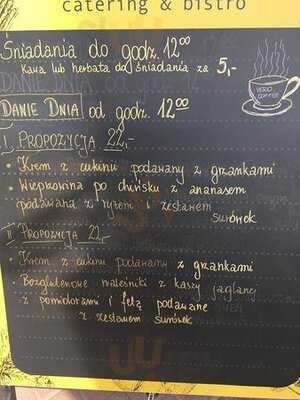 catering & bistro
Śniadania do godz. 12⁰⁰
Kawa lub herbata do śniadania za 5,-
DANIE DNIA od godz. 12⁰⁰
I PROPOZYCJA 22,-
• Krem z cukinii podawany z grzankami
• Wieprzowina po chińsku z ananasem
podawana z ryżem i zestawem
surówek
II PROPOZYCJA 22,-
• Krem z cukinii podawany z grzankami
• Bezglutenowe naleśniki z kaszy jaglanej
z pomidorami i fetą podawane
z zestawem surówek